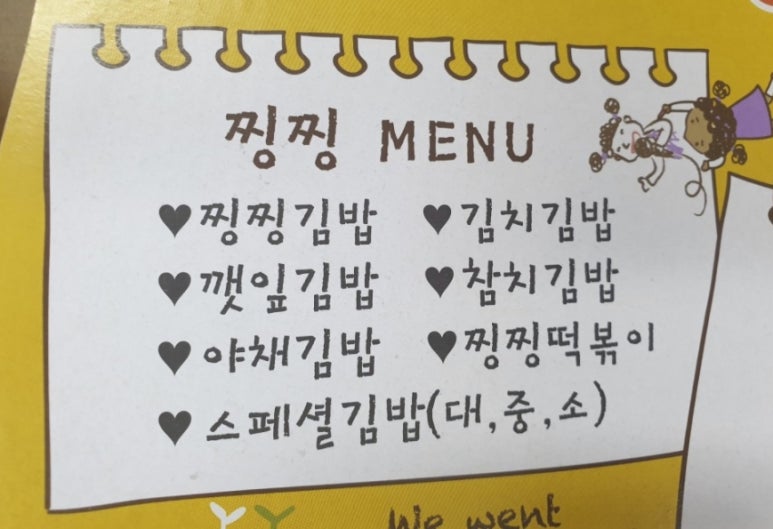 찡찡 MENU
♥찡찡김밥 ♥김치김밥
♥깻잎김밥 ♥참치김밥
♥야채김밥 ♥찡찡떡볶이
♥스페셜김밥(대,중,소)
We went